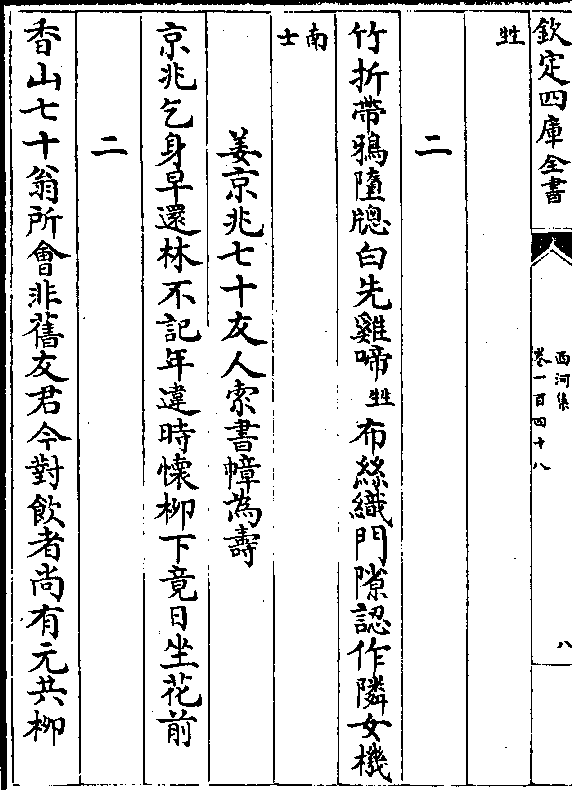 欽定四庫全書
西河集
卷一百四十八
八
甡
二
竹折帶鴉墮牕白先雞啼甡布絲織門隙認作隣女機
南士
姜京兆七十友人索書幛為壽
京兆乞身早還林不記年違時懷柳下竟日坐花前
二
香山七十翁所會非舊友君今對飲者尚有元共柳